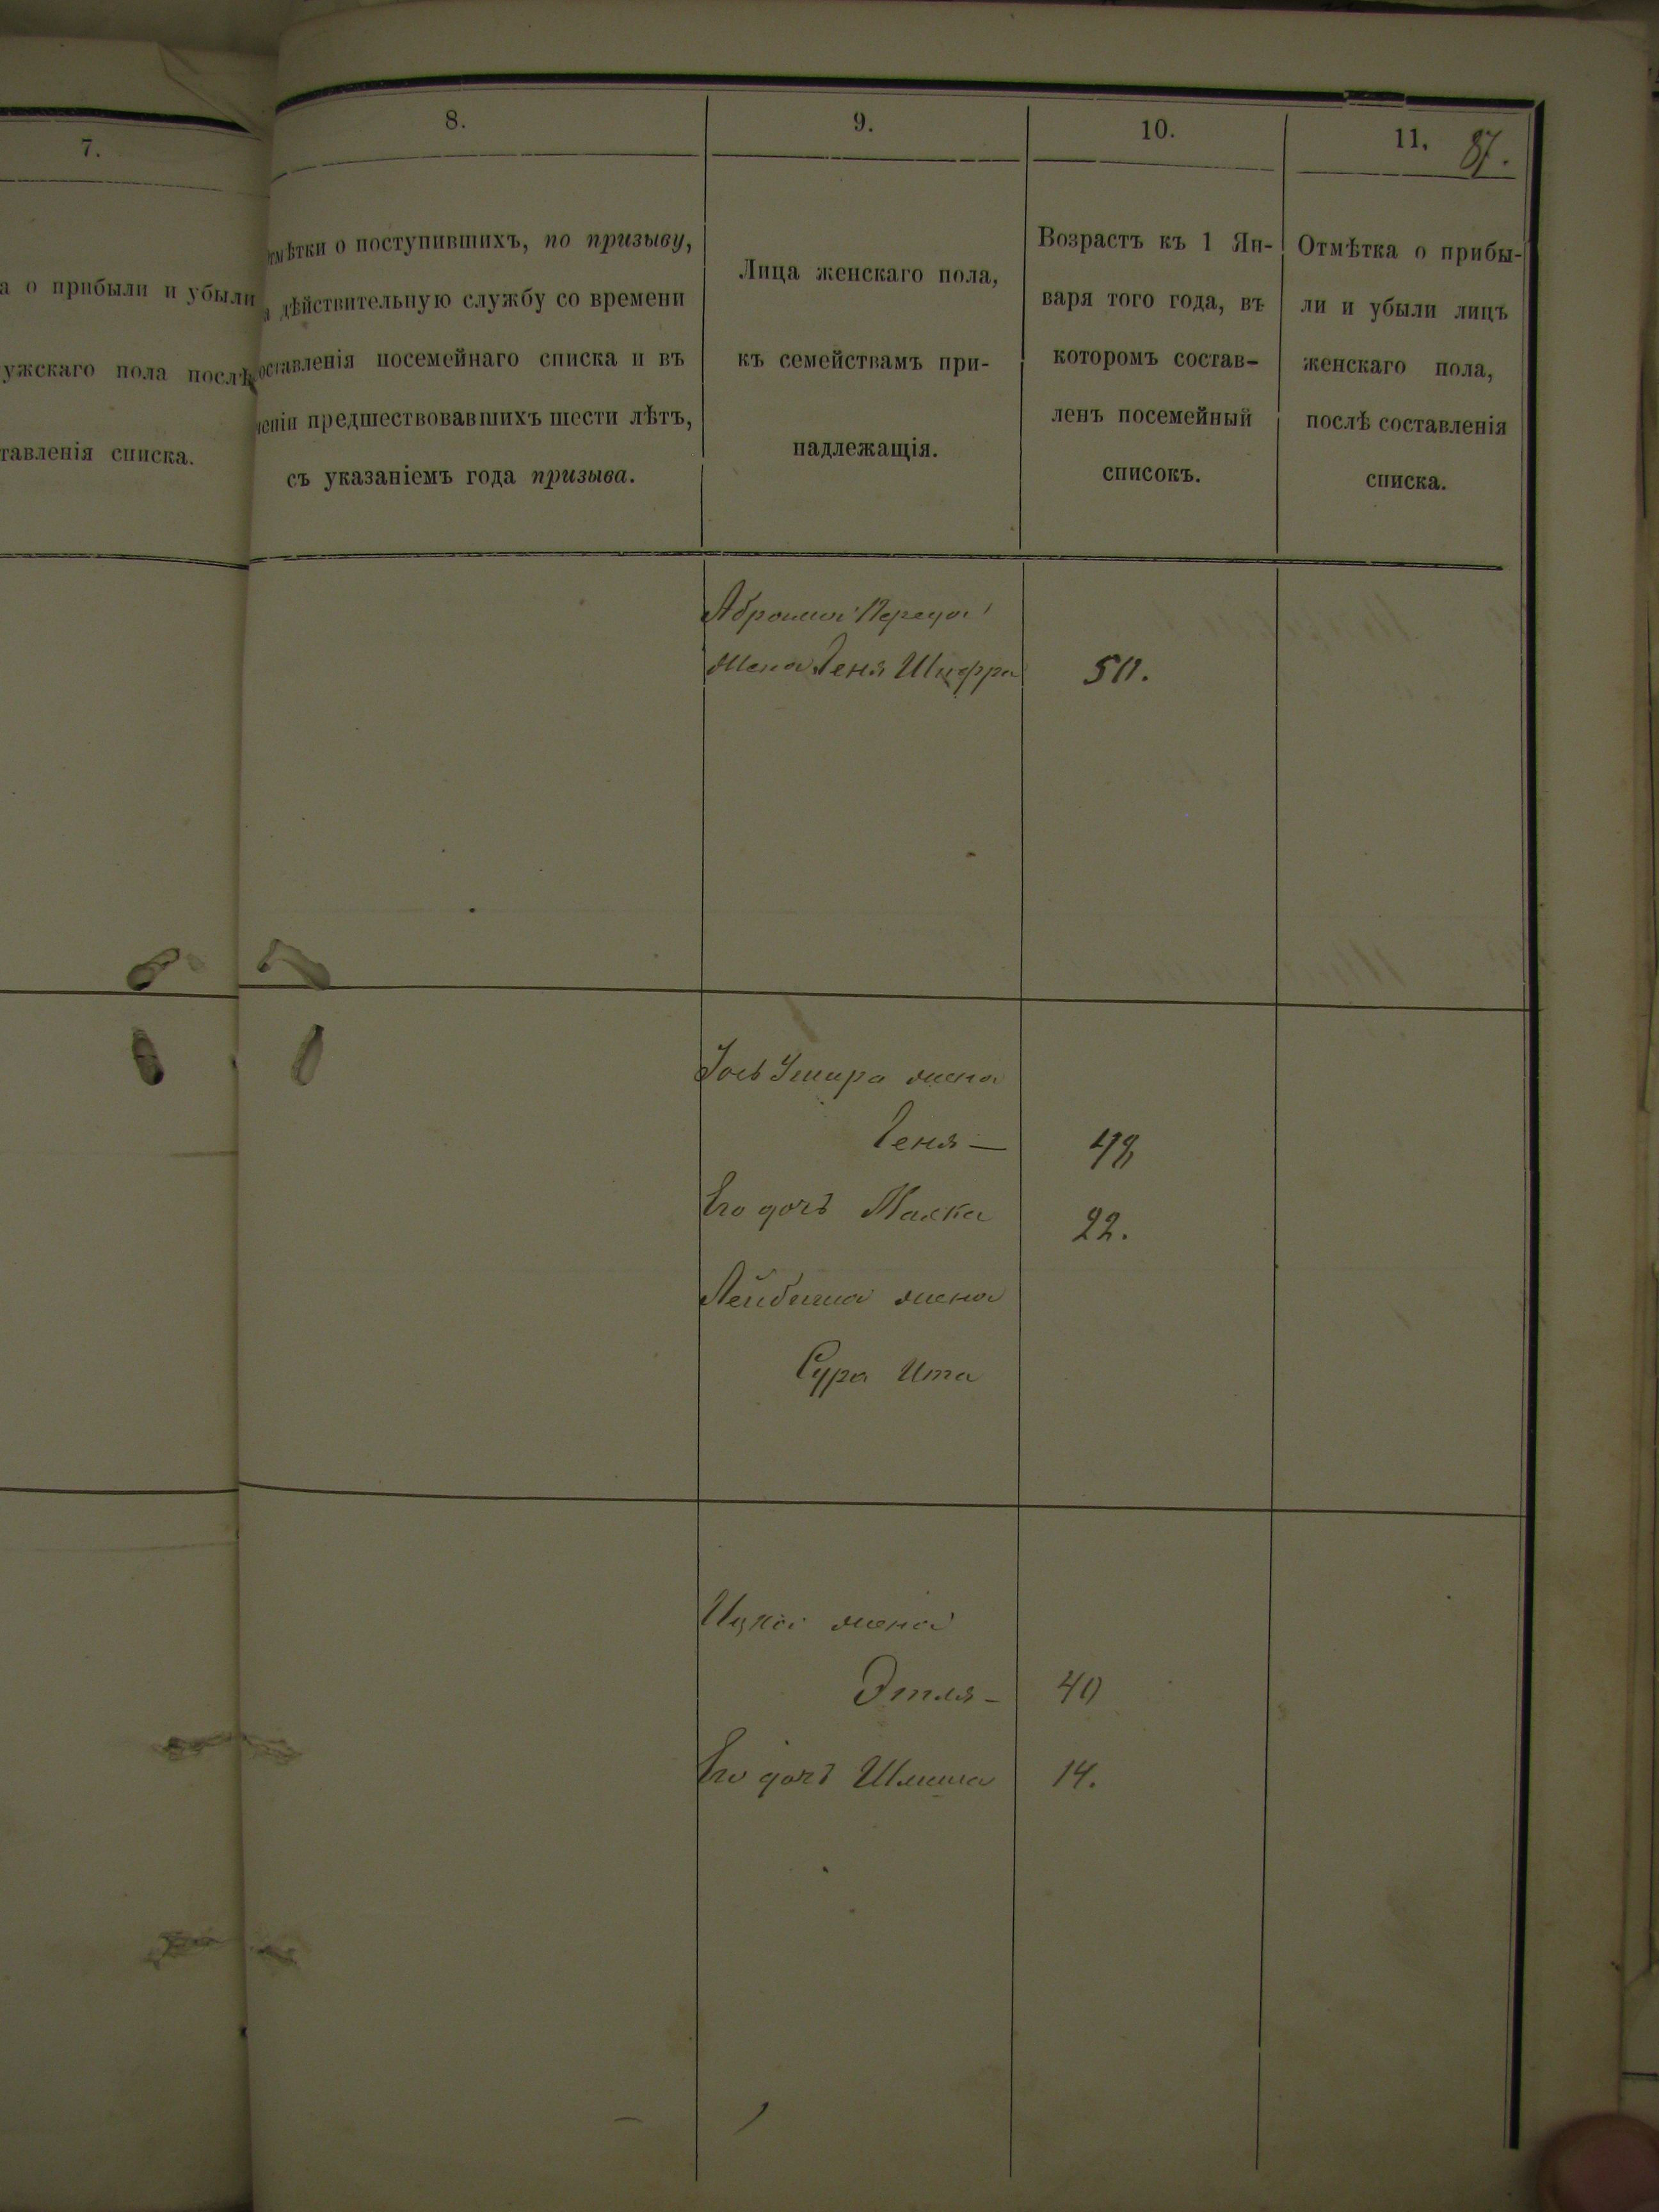 7.
а о прибыли и убыли
ужскаго пола послѣ
тавленія списка.
8.
тмѣтки о поступившихъ, по призыву,
а дѣйствительную службу со времени
составленія посемейнаго списка и въ
ченіи предшествовавшихъ шести лѣтъ,
съ указаніемъ года призыва.
9.
Лица женскаго пола,
къ семействамъ при-
надлежащія.
10.
Возрастъ къ 1 Ян-
варя того года, въ
которомъ состав-
ленъ посемейный
списокъ.
11. 87.
Отмѣтка о прибы-
ли и убыли лицъ
женскаго пола,
послѣ составленія
списка.
Абрама Переца
жена Геня Шифра 50.
жена
Геня — 48
Его дочь Малка 22.
Лейбыша жена
Сура Ита
Ицка жена
Этля - 40
Его дочь 14.